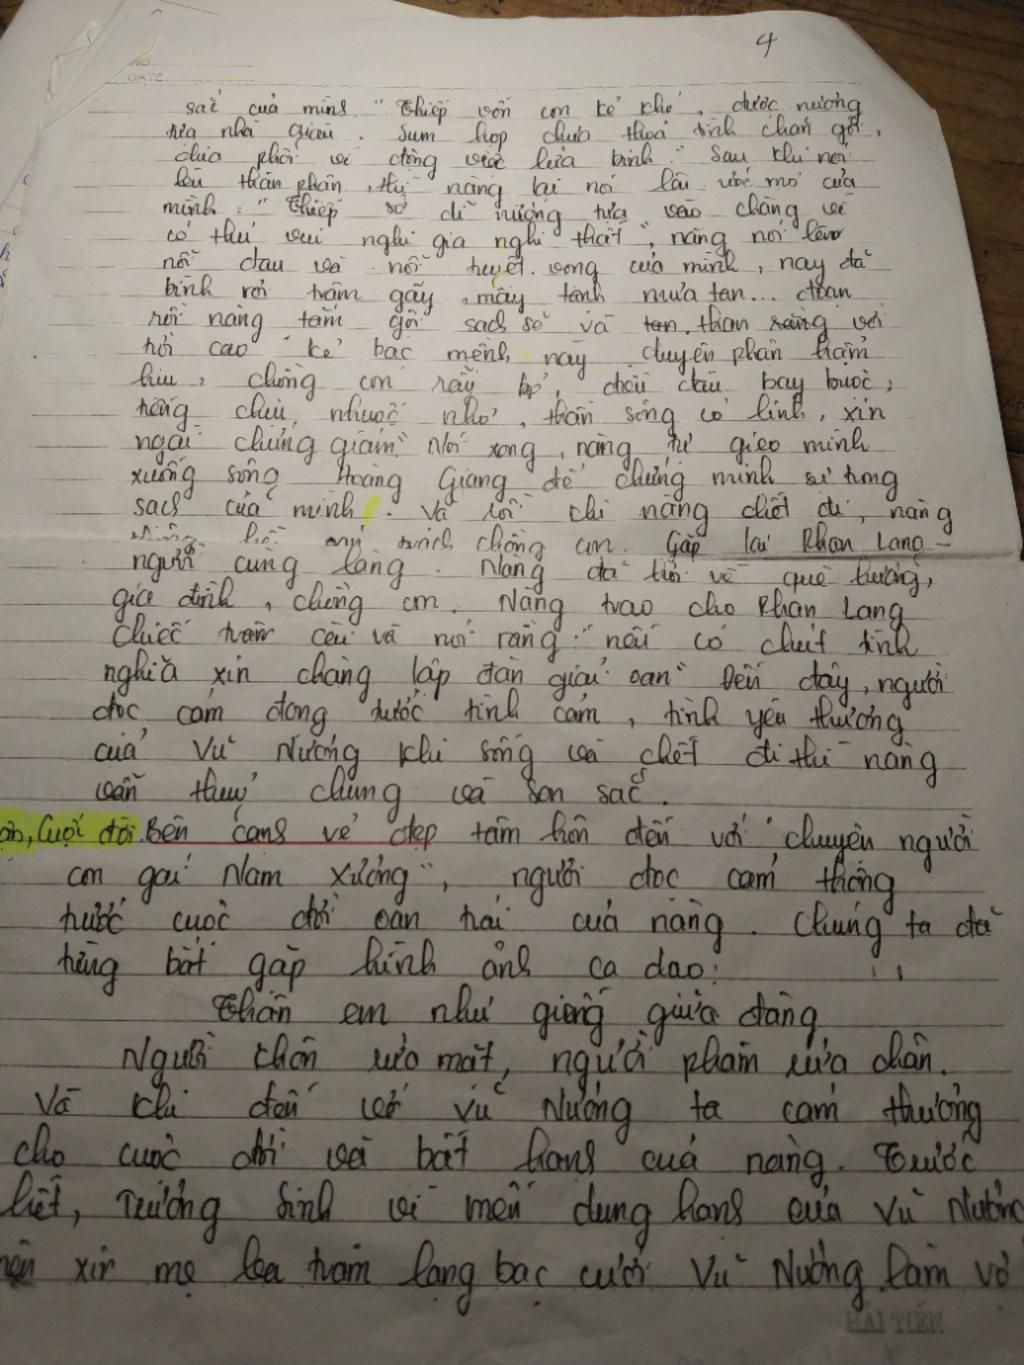 4
NO
DATE
sắt của mình "Thiếp vốn con kẻ khó, được nương
tựa nhà giàu. Sum họp chưa thoả tình chăn gối,
chia phôi vì động việc lửa binh." Sau khi nói
lên thân phận, thì nàng lại nói lên ước mơ của
mình: "Thiếp sở dĩ nương tựa vào chàng vì
có thú vui nghi gia nghi thất", nàng nói lên
nỗi đau và nỗi tuyệt vọng của mình, nay đã
bình rơi trâm gãy, mây tạnh mưa tan... đoạn
rồi nàng tắm gội sạch sẽ và than rằng với
trời cao "kẻ bạc mệnh này duyên phận hẩm
hiu, chồng con rẫy bỏ, điều đâu bay buộc,
tiếng chịu nhuốc nhơ, thần sông có linh, xin
ngài chứng giám". Nói xong, nàng tự gieo mình
xuống sông Hoàng Giang để chứng minh sự trong
sạch của mình. Và rồi khi nàng chết đi, nàng
chồng con. Gặp lại Phan Lang -
người cùng làng. Nàng đã hỏi về quê hương,
gia đình, chồng con. Nàng trao cho Phan Lang
chiếc trâm cài và nói rằng: "nếu có chút tình
nghĩa xin chàng lập đàn giải oan" Đến đây, người
đọc cảm động trước tình cảm, tình yêu thương
của Vũ Nương khi sống và chết đi thì nàng
vẫn thuỷ chung và son sắc.
Cuộc đời. Bên cạnh vẻ đẹp tâm hồn đến với "chuyện người
con gái Nam Xương", người đọc cảm thông
trước cuộc đời oan trái của nàng. Chúng ta đã
từng bắt gặp hình ảnh ca dao:
Thân em như giếng giữa đàng
Người khôn rửa mặt, người phàm rửa chân.
Và khi đến với Vũ Nương ta cảm thương
cho cuộc đời và bất hạnh của nàng. Trước
hết, Trương Sinh vì mến dung hạnh của Vũ Nương
nên xin mẹ đem trăm lạng bạc cưới Vũ Nương làm vợ
HẢI TIẾN